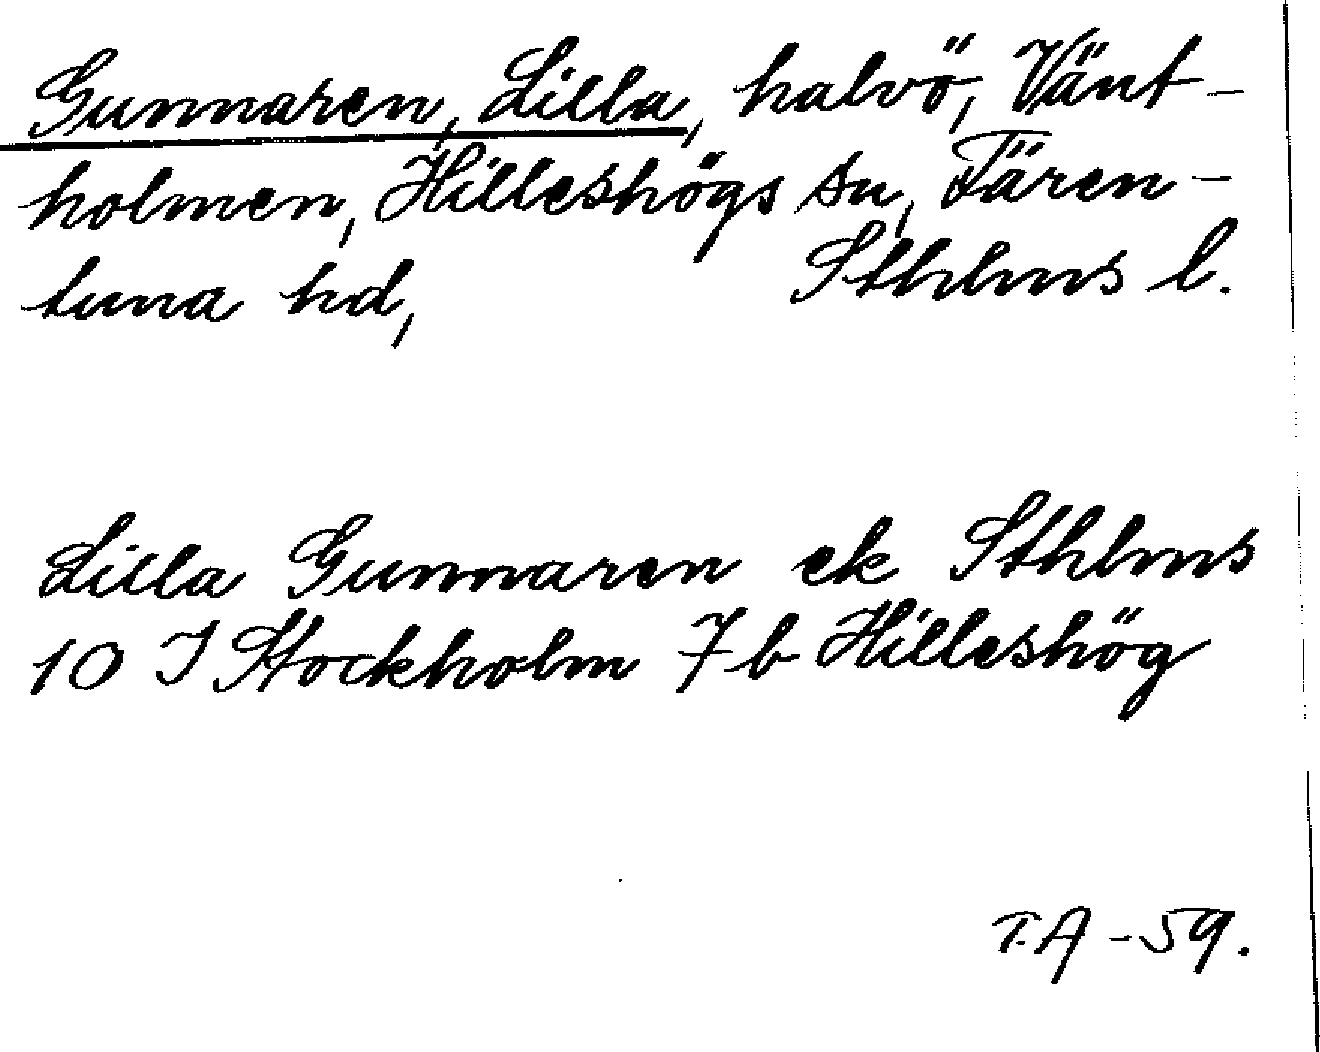 Gunnaren, Lilla, halvö, Vänt-
holmen, Hilleshögs sn, Fären-
tuna hd, Sthlms l.
Lilla Gunnaren ek Sthlms
10 I Stockholm 7 b Hilleshög
T.A -59.